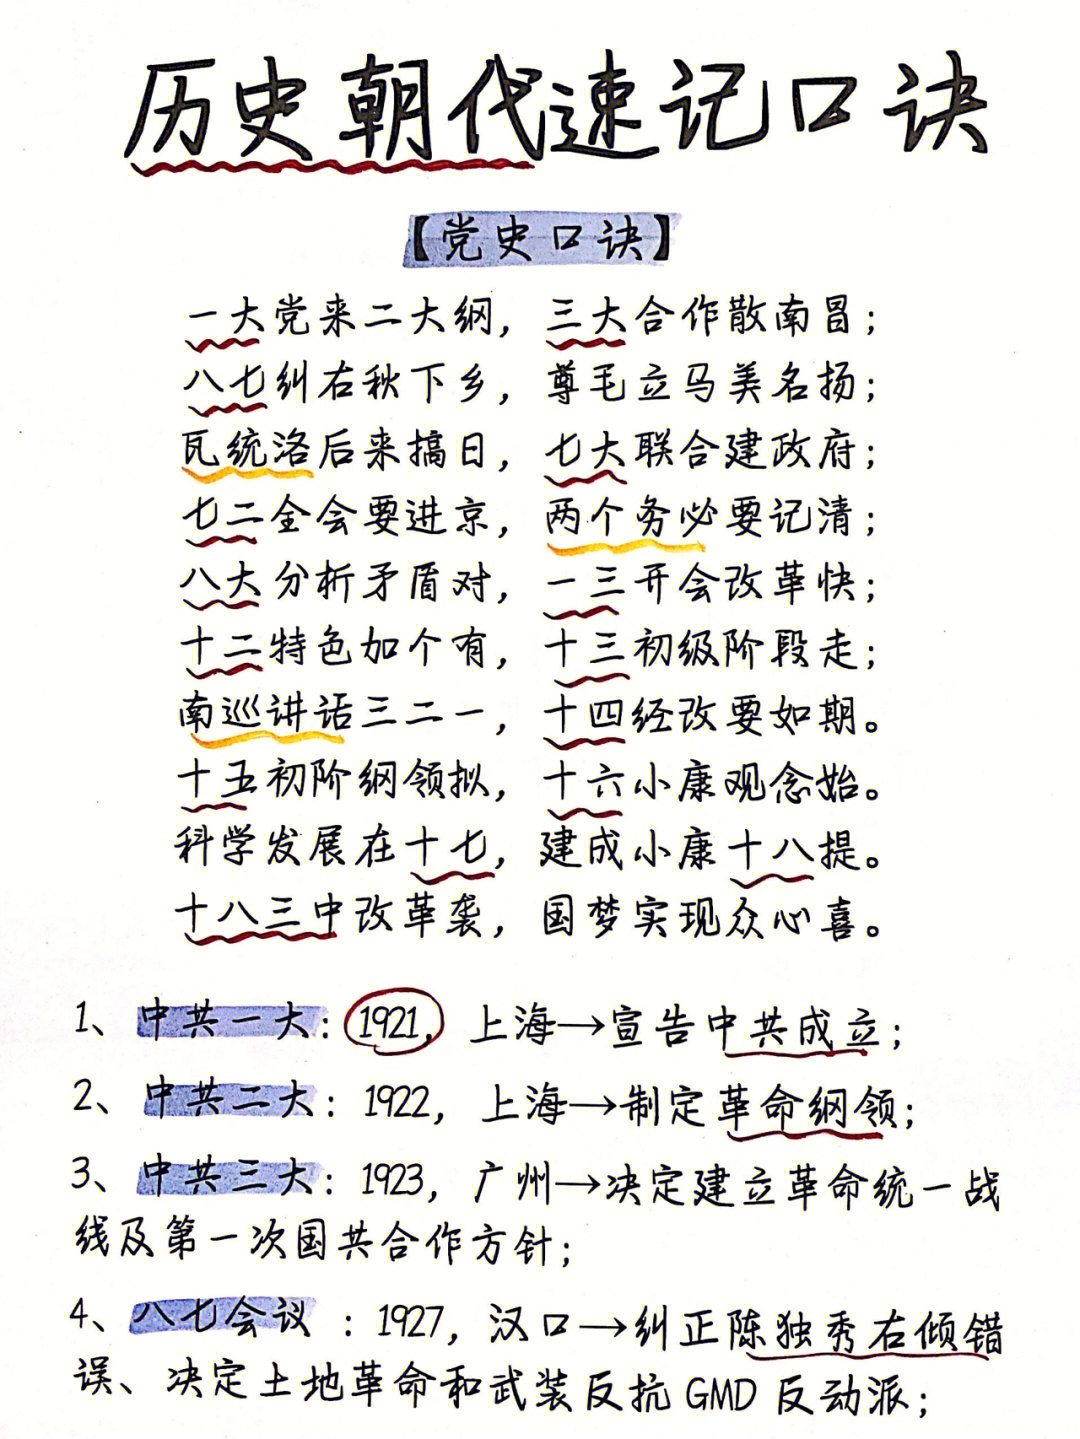 历史朝代速记口诀
【党史口诀】
一大党来二大纲，三大合作散南冒；
八七纠右秋下乡，尊毛立马美名扬；
瓦统洛后来搞日，七大联合建政府；
七二全会要进京，两个务必要记清；
八大分析矛盾对，一三开会改革快；
十二特色加个有，十三初级阶段走；
南巡讲话三二一，十四经改要如期。
十五初阶纲领拟，十六小康观念始。
科学发展在十七，建成小康十八提。
十八三中改革袭，国梦实现众心喜。
1、中共一大：1921，上海→宣告中共成立；
2、中共二大：1922，上海→制定革命纲领；
3、中共三大：1923，广州→决定建立革命统一战
线及第一次国共合作方针；
4、八七会议：1927，汉口→纠正陈独秀右倾错
误、决定土地革命和武装反抗GMD反动派；